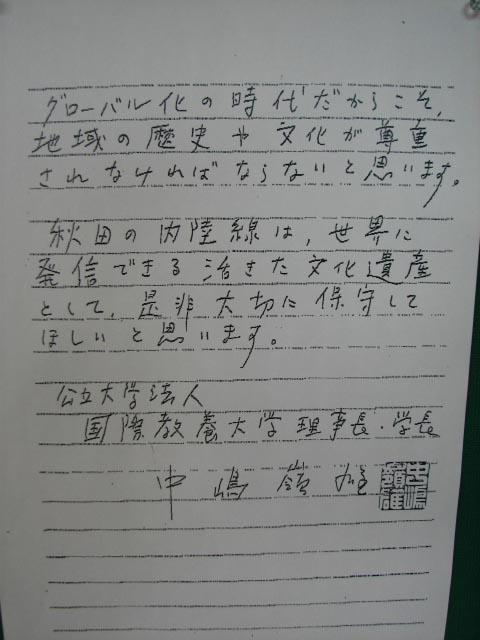 グローバル化の時代だからこそ,
地域の歴史や文化が尊重
されなければならないと思います。
秋田の内陸線は,世界に
発信できる活きた文化遺産
として,是非大切に保守して
ほしいと思います。
公立大学法人
国際教養大学理事長・学長
中嶋嶺雄
中嶋嶺雄